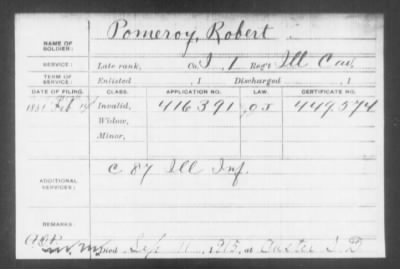 Pomeroy, Robert
NAME OF SOLDIER:
SERVICE: Late rank, Co. I, 1 Reg't Ill Cav.
TERM OF SERVICE: Enlisted , 1 Discharged , 1
DATE OF FILING. CLASS. APPLICATION NO. LAW. CERTIFICATE NO.
1881 Feb Invalid, 416391 449.574
Widow,
Minor,
C 87 Ill Inf.
ADDITIONAL SERVICES:
REMARKS:
Died Sept 11, 1915, at Custer S. D